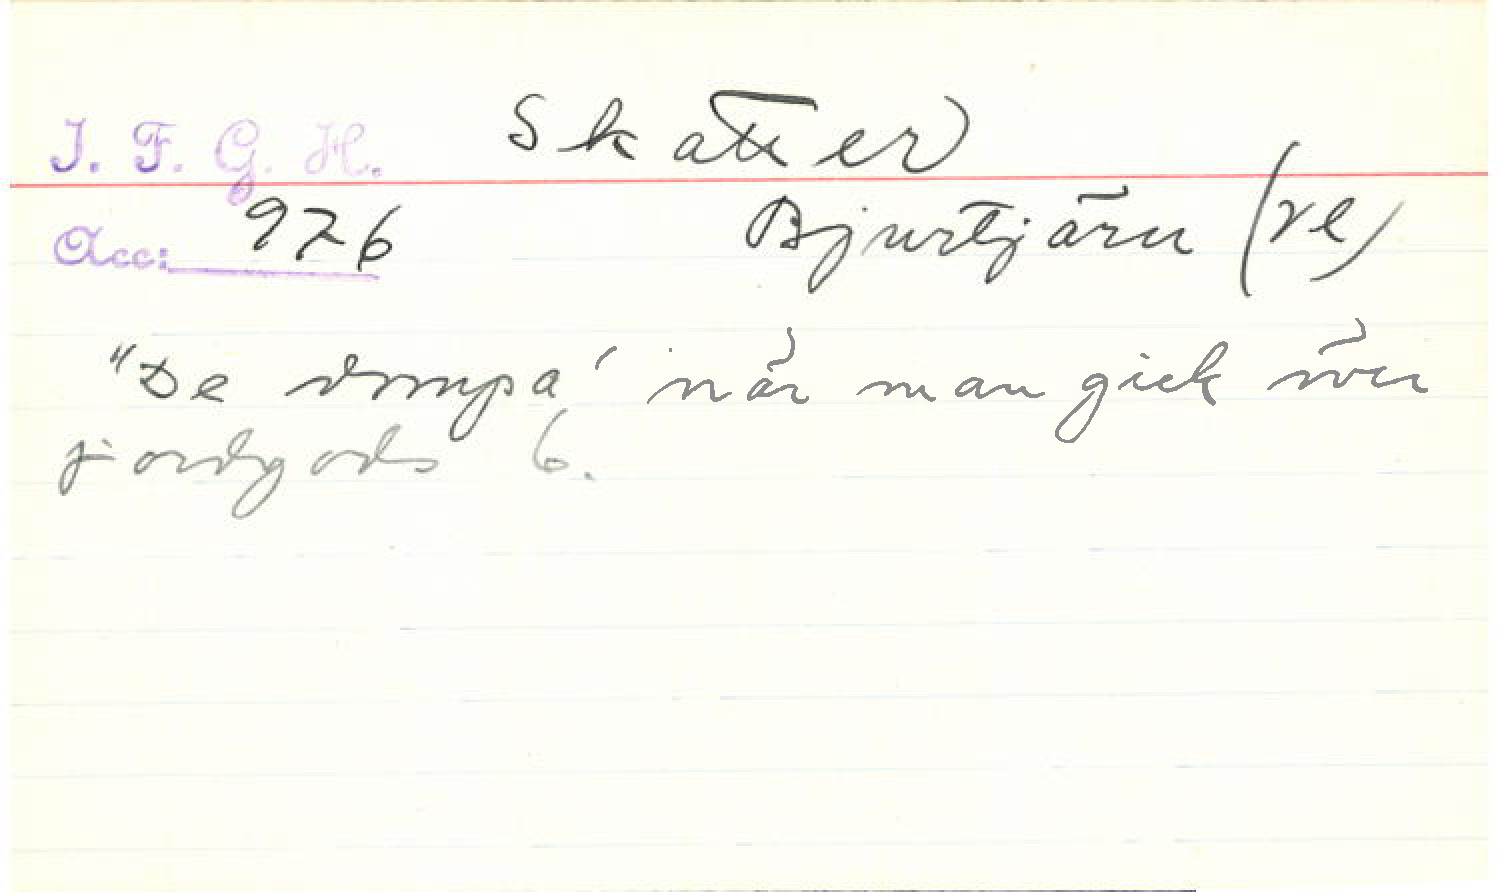 I. F. G. H. Skatter
Acc: 976 Bjurtjärn (vl)
"De dompa' när man gick över
jordgods 6.